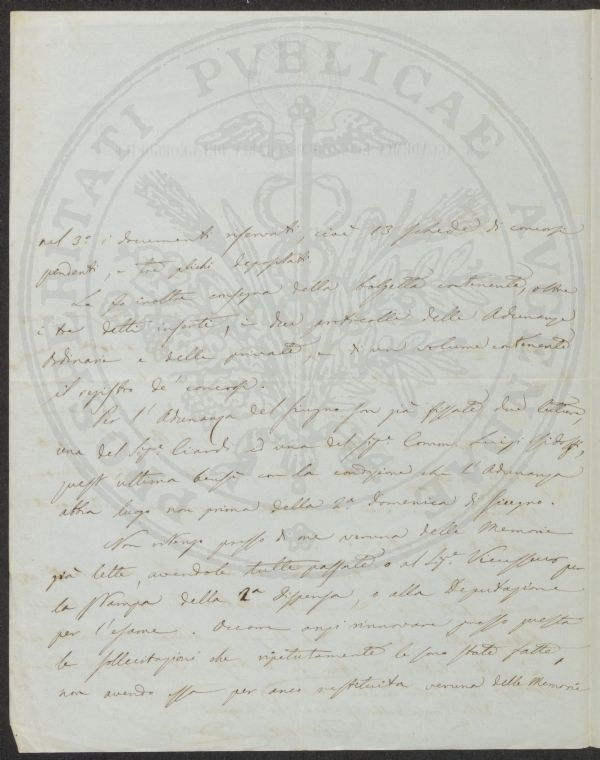 PROSPERITATI PVBLICAE AVGENDAE
nel 3º i documenti riservati, cioè 13 schede di concorsi
pendenti, e tre plichi depositati.
Le fo inoltre consegna della bolgetta contenente, oltre
i tre detti inserti, i due protocolli delle Adunanze
Ordinarie e delle private, e di un volume contenente
il registro de' concorsi.
Per l'Adunanza del Giugno son già fissate due letture,
una del Sigr. e una del Sigr. Comm. Luigi
quest'ultima bensì con la condizione che l'Adunanza
abbia luogo non prima della 2ª Domenica di Giugno.
Non ritengo presso di me veruna delle Memorie
già lette, avendole tutte passate o al Sigr. per
la Stampa della 2ª Dispensa, o alla Deputazione
per l'esame. Occorre anzi rinnovare presso questa
le sollecitazioni che ripetutamente le sono state fatte,
non avendo essa per anco restituita veruna delle Memorie